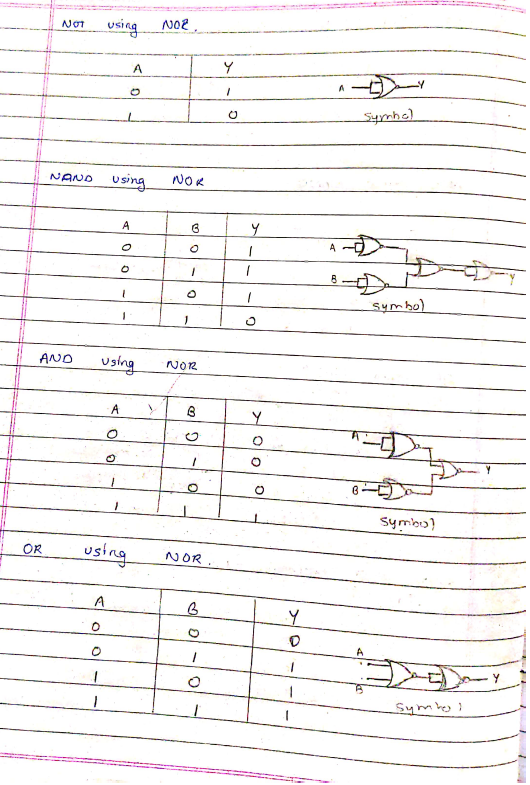 NOT using NOR.
A Y
0 1
1 0
A Y
Symbol
NAND using NOR
A B Y
0 0 1
0 1 1
1 0 1
1 1 0
A
B
Y
Symbol
AND using NOR
A B Y
0 0 0
0 1 0
1 0 0
1 1 1
A
B
Y
Symbol
OR using NOR.
A B Y
0 0 0
0 1 1
1 0 1
1 1 1
A
B
Y
Symbol